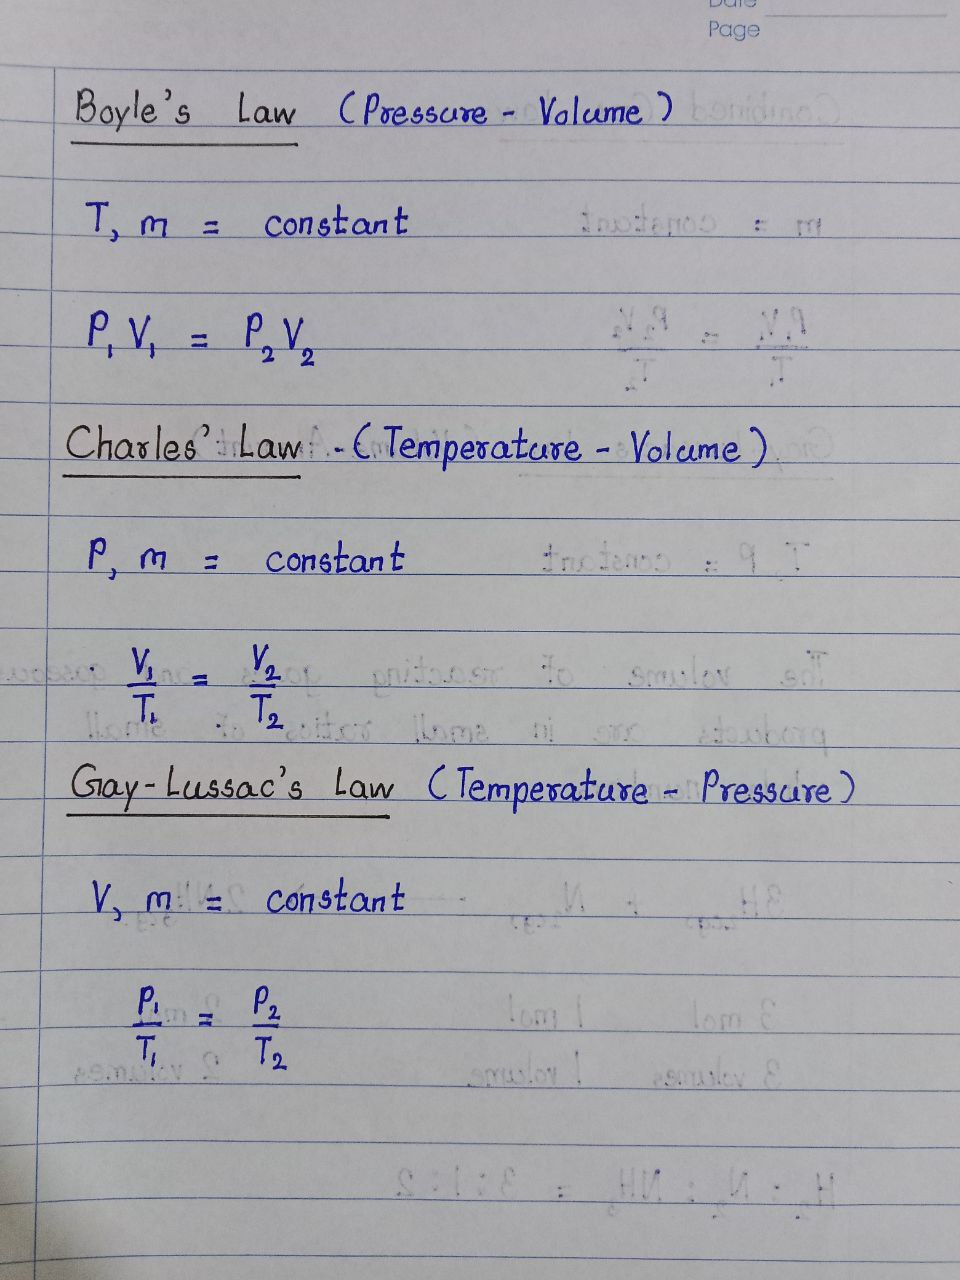 Date
Page
Boyle's Law (Pressure - Volume)
T, m = constant
P₁V₁ = P₂V₂
Charles' Law - (Temperature - Volume)
P, m = constant
V₁/T₁ = V₂/T₂
Gay-Lussac's Law (Temperature - Pressure)
V, m = constant
P₁/T₁ = P₂/T₂